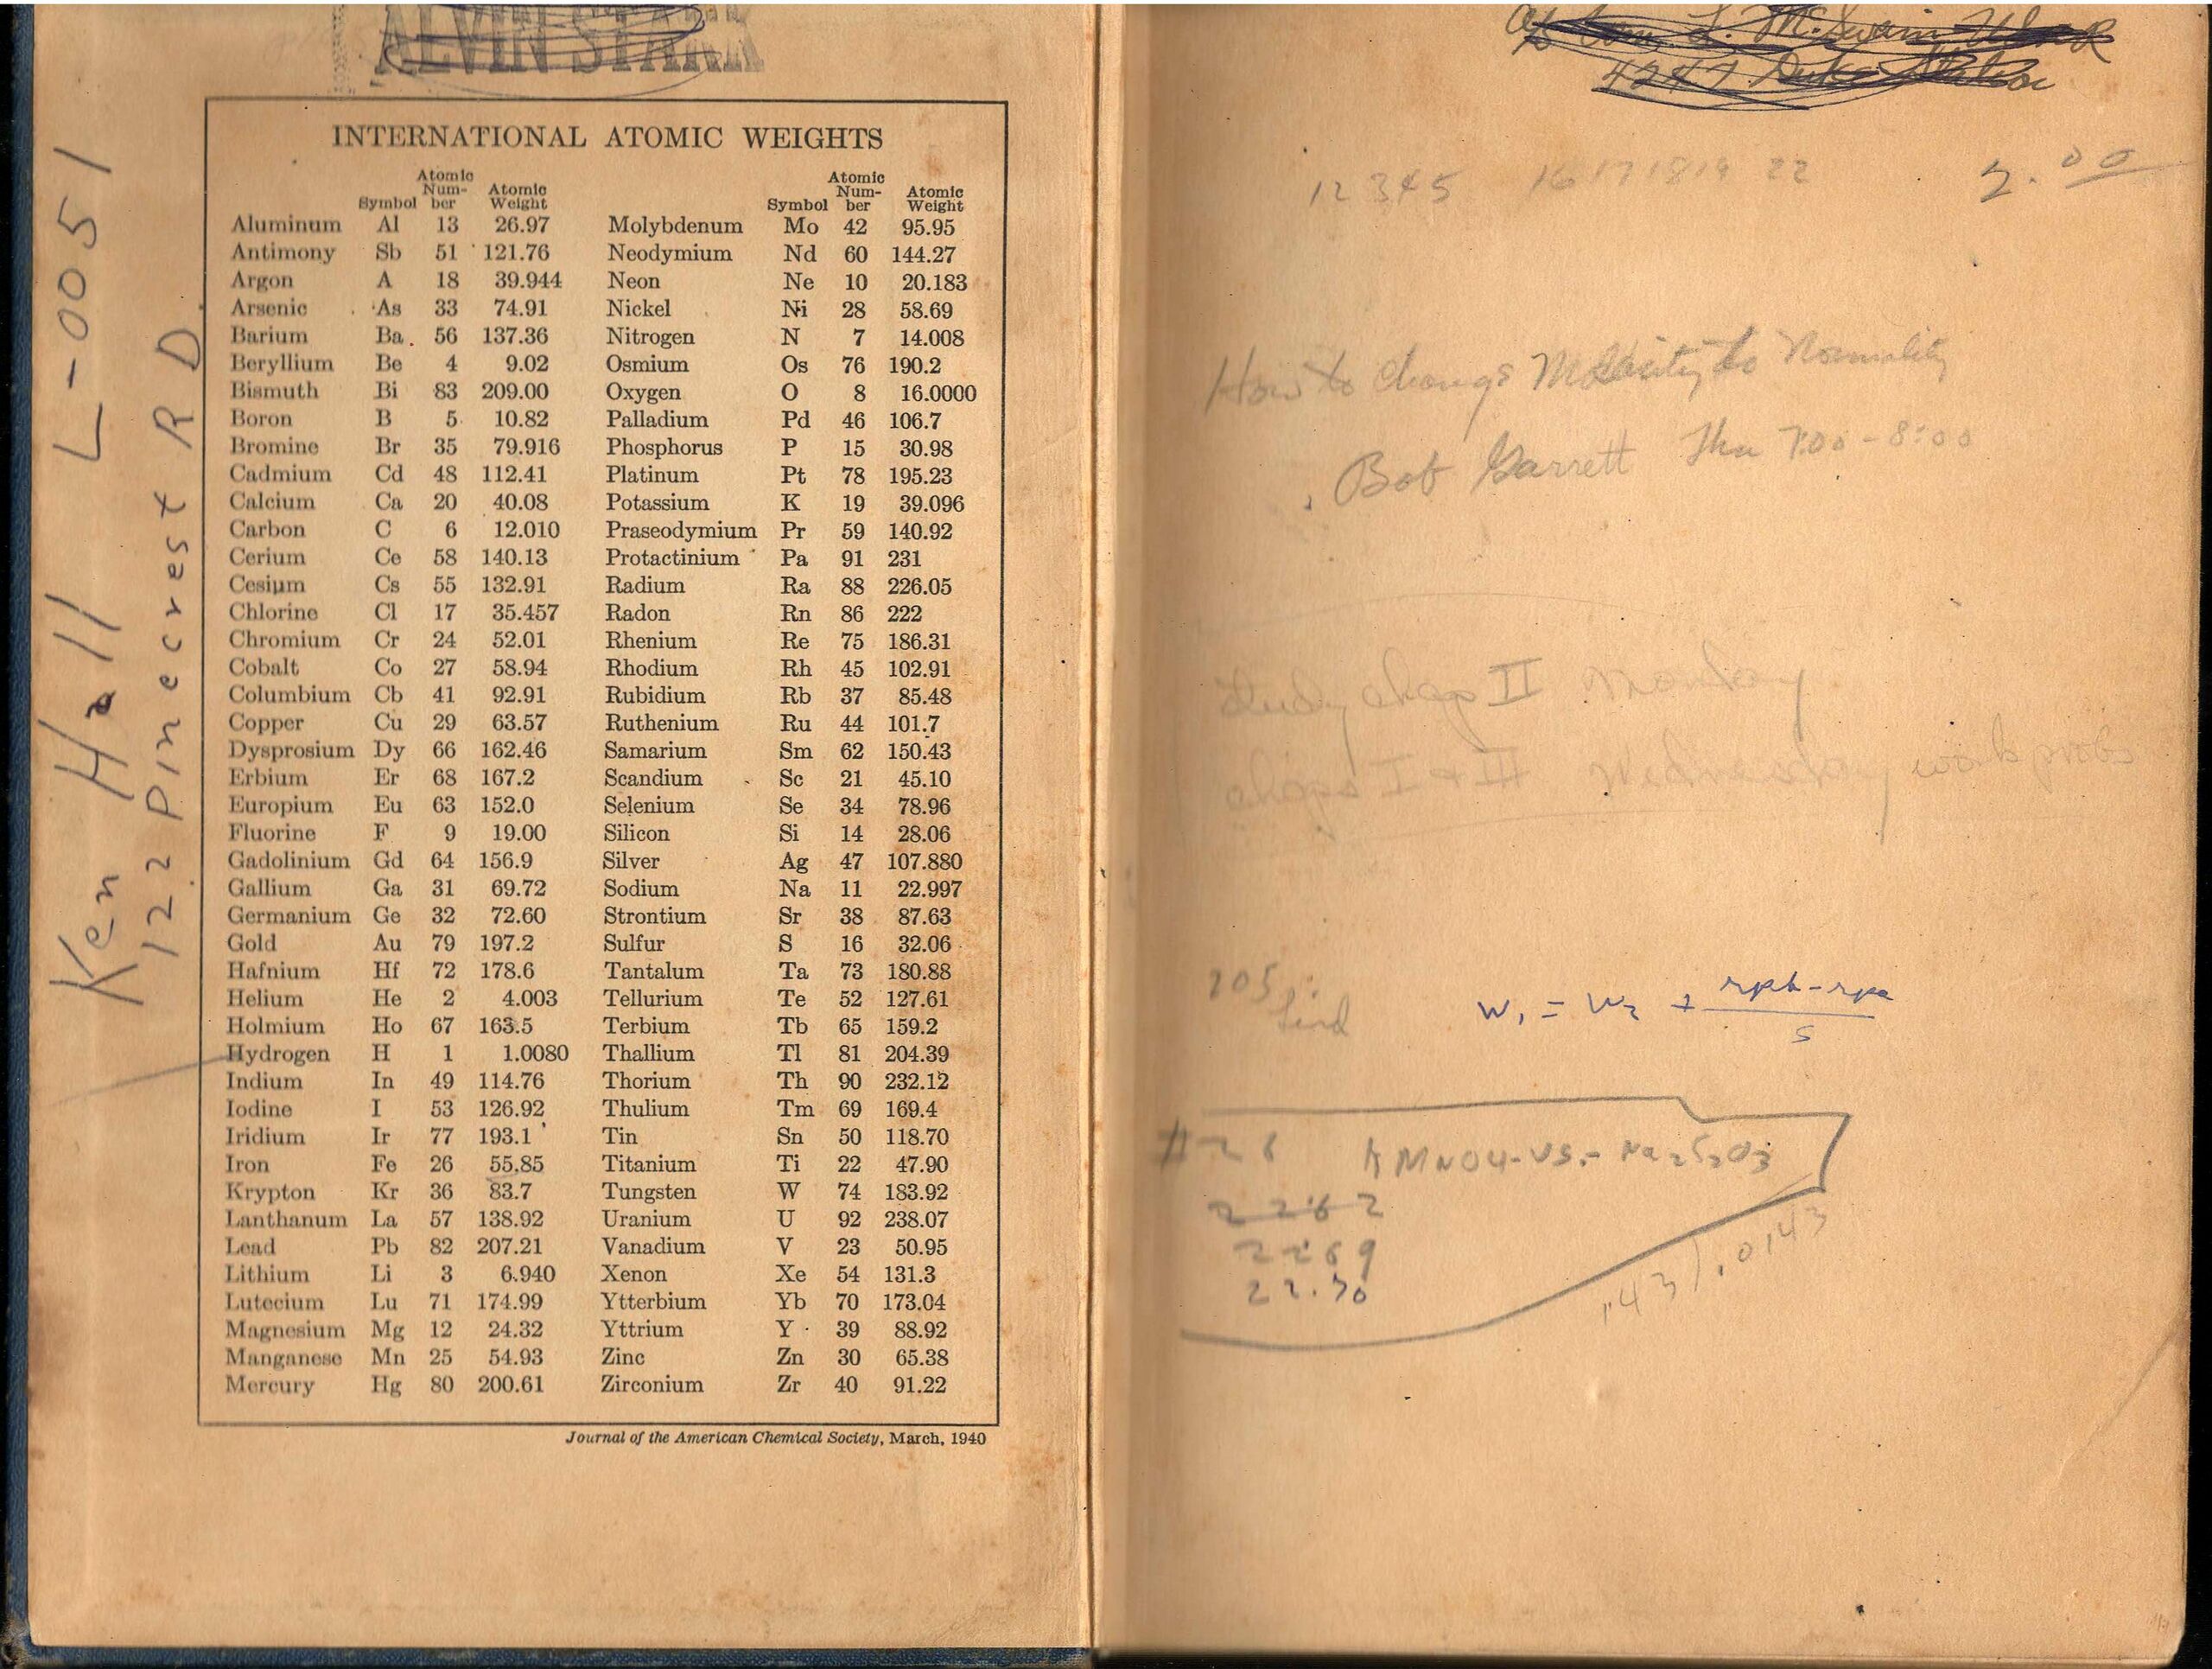 ALVIN STARK
Ken Hall L-0051
122 Pinecrest RD
INTERNATIONAL ATOMIC WEIGHTS
Symbol Atomic Num- ber Atomic Weight Symbol Atomic Num- ber Atomic Weight
Aluminum Al 13 26.97 Molybdenum Mo 42 95.95
Antimony Sb 51 121.76 Neodymium Nd 60 144.27
Argon A 18 39.944 Neon Ne 10 20.183
Arsenic As 33 74.91 Nickel Ni 28 58.69
Barium Ba 56 137.36 Nitrogen N 7 14.008
Beryllium Be 4 9.02 Osmium Os 76 190.2
Bismuth Bi 83 209.00 Oxygen O 8 16.0000
Boron B 5 10.82 Palladium Pd 46 106.7
Bromine Br 35 79.916 Phosphorus P 15 30.98
Cadmium Cd 48 112.41 Platinum Pt 78 195.23
Calcium Ca 20 40.08 Potassium K 19 39.096
Carbon C 6 12.010 Praseodymium Pr 59 140.92
Cerium Ce 58 140.13 Protactinium Pa 91 231
Cesium Cs 55 132.91 Radium Ra 88 226.05
Chlorine Cl 17 35.457 Radon Rn 86 222
Chromium Cr 24 52.01 Rhenium Re 75 186.31
Cobalt Co 27 58.94 Rhodium Rh 45 102.91
Columbium Cb 41 92.91 Rubidium Rb 37 85.48
Copper Cu 29 63.57 Ruthenium Ru 44 101.7
Dysprosium Dy 66 162.46 Samarium Sm 62 150.43
Erbium Er 68 167.2 Scandium Sc 21 45.10
Europium Eu 63 152.0 Selenium Se 34 78.96
Fluorine F 9 19.00 Silicon Si 14 28.06
Gadolinium Gd 64 156.9 Silver Ag 47 107.880
Gallium Ga 31 69.72 Sodium Na 11 22.997
Germanium Ge 32 72.60 Strontium Sr 38 87.63
Gold Au 79 197.2 Sulfur S 16 32.06
Hafnium Hf 72 178.6 Tantalum Ta 73 180.88
Helium He 2 4.003 Tellurium Te 52 127.61
Holmium Ho 67 163.5 Terbium Tb 65 159.2
Hydrogen H 1 1.0080 Thallium Tl 81 204.39
Indium In 49 114.76 Thorium Th 90 232.12
Iodine I 53 126.92 Thulium Tm 69 169.4
Iridium Ir 77 193.1 Tin Sn 50 118.70
Iron Fe 26 55.85 Titanium Ti 22 47.90
Krypton Kr 36 83.7 Tungsten W 74 183.92
Lanthanum La 57 138.92 Uranium U 92 238.07
Lead Pb 82 207.21 Vanadium V 23 50.95
Lithium Li 3 6.940 Xenon Xe 54 131.3
Lutecium Lu 71 174.99 Ytterbium Yb 70 173.04
Magnesium Mg 12 24.32 Yttrium Y 39 88.92
Manganese Mn 25 54.93 Zinc Zn 30 65.38
Mercury Hg 80 200.61 Zirconium Zr 40 91.22
Journal of the American Chemical Society, March, 1940
L. McSwain
4247 Duke Station
12345 16 17 18 19 22 2.00
How to change Molarity to Normality
Bob Garrett Thu 7:00 - 8:00
Study chap II Monday
chaps I + III Wednesday work probs
205: find
W1 = W2 + rpb-rpa / s
#26 KMNO4-VS.- Na2S2O3
2262
2269
22.70
.143).0143